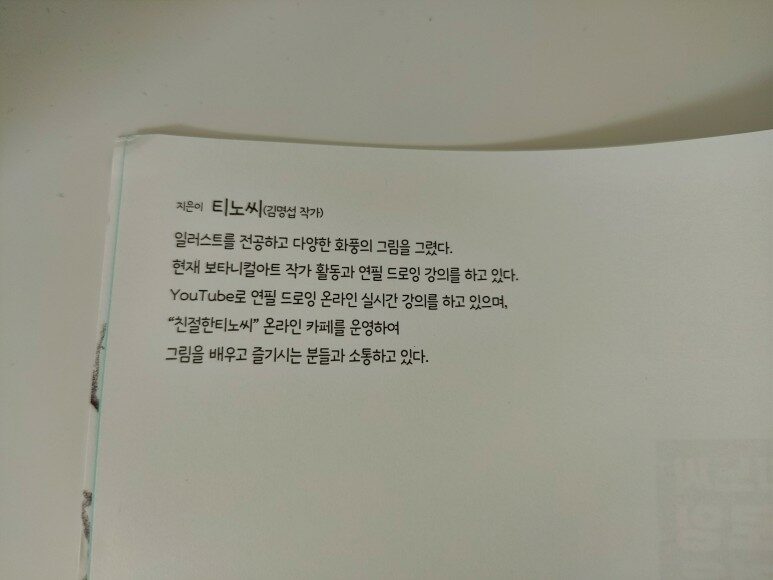 지은이 티노씨(김명섭 작가)
일러스트를 전공하고 다양한 화풍의 그림을 그렸다.
현재 보타니컬아트 작가 활동과 연필 드로잉 강의를 하고 있다.
YouTube로 연필 드로잉 온라인 실시간 강의를 하고 있으며,
“친절한티노씨” 온라인 카페를 운영하여
그림을 배우고 즐기시는 분들과 소통하고 있다.